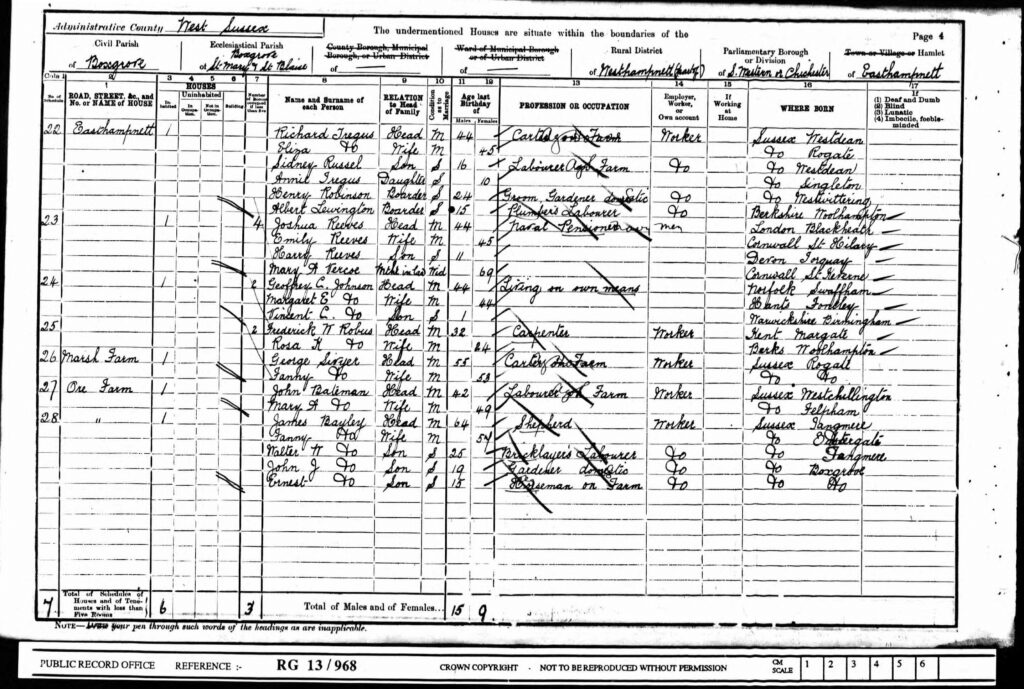 Administrative County West Sussex
The undermentioned Houses are situate within the boundaries of the
Page 4
Civil Parish
of Boxgrove
Ecclesiastical Parish
of Boxgrove St Mary & St Blaise
County Borough, Municipal Borough, or Urban District
of
Ward of Municipal Borough or of Urban District
of
Rural District
of Westhampnett
Parliamentary Borough or Division
of S. Western or Chichester
Town or Village or Hamlet
of Easthampnett
Cols. 1 2 3 4 5 6 7 8 9 10 11 12 13 14 15 16 17
No. of Schedule
ROAD, STREET, &c., and No. or NAME of HOUSE
HOUSES
Inhabited
Uninhabited
In Occupation
Not in Occupation
Building
Number of Rooms occupied if less than five
Name and Surname of each Person
RELATION to Head of Family
Condition as to Marriage
Age last Birthday of
Males Females
PROFESSION OR OCCUPATION
Employer, Worker, or Own account
If Working at Home
WHERE BORN
If
(1) Deaf and Dumb
(2) Blind
(3) Lunatic
(4) Imbecile, feeble-minded
22 Easthampnett 1 Richard Tregus Head M 44 Carter on Farm Worker Sussex Westdean
Eliza Do Wife M 45 Do Rogate
Sidney Russel Son S 16 Labourer Agl Farm Do Do Westdean
Annie Tregus Daughter 10 Do Singleton
Henry Robinson Boarder S 24 Groom Gardener domestic Do Do Westwittering
Albert Lewington Boarder S 15 Plumber's Labourer Do Berkshire Woolhampton
23 1 4 Joshua Reeves Head M 44 Naval Pensioner London Blackheath
Emily Reeves Wife M 45 Cornwall St Hilary
Harry Reeves Son S 11 Devon Torquay
Mary A Vercoe Mother in Law Wid 69 Cornwall St Keverne
24 1 2 Geoffrey C. Johnson Head M 44 Living on own means Norfolk Swaffham
Margaret E. Do Wife M 44 Hants
Vincent C. Do Son S 1 Warwickshire Birmingham
25 2 Frederick W Robus Head M 32 Carpenter Worker Kent Margate
Rosa K Do Wife M 24 Berks Woolhampton
26 Marsh Farm 1 George Head M 55 Carter on Farm Worker Sussex Rogate
Fanny Do Wife M 53 Do Do
27 Ore Farm 1 John Bateman Head M 42 Labourer on Farm Worker Sussex Westchillington
Mary A Do Wife M 49 Do Felpham
28 " 1 James Bayley Head M 64 Shepherd Worker Sussex Tangmere
Fanny Do Wife M 54 Do Eastergate
Walter W Do Son S 25 Bricklayer's Labourer Do Do Tangmere
John J Do Son S 19 Gardener domestic Do Do Boxgrove
Ernest Do Son S 15 Horseman on Farm Do Do Do
7 Total of Schedules of Houses and of Tenements with less than Five Rooms 6 3 Total of Males and of Females... 15 9
NOTE—Draw your pen through such words of the headings as are inapplicable.
PUBLIC RECORD OFFICE REFERENCE :- RG 13/968 CROWN COPYRIGHT - NOT TO BE REPRODUCED WITHOUT PERMISSION CM SCALE 1 2 3 4 5 6